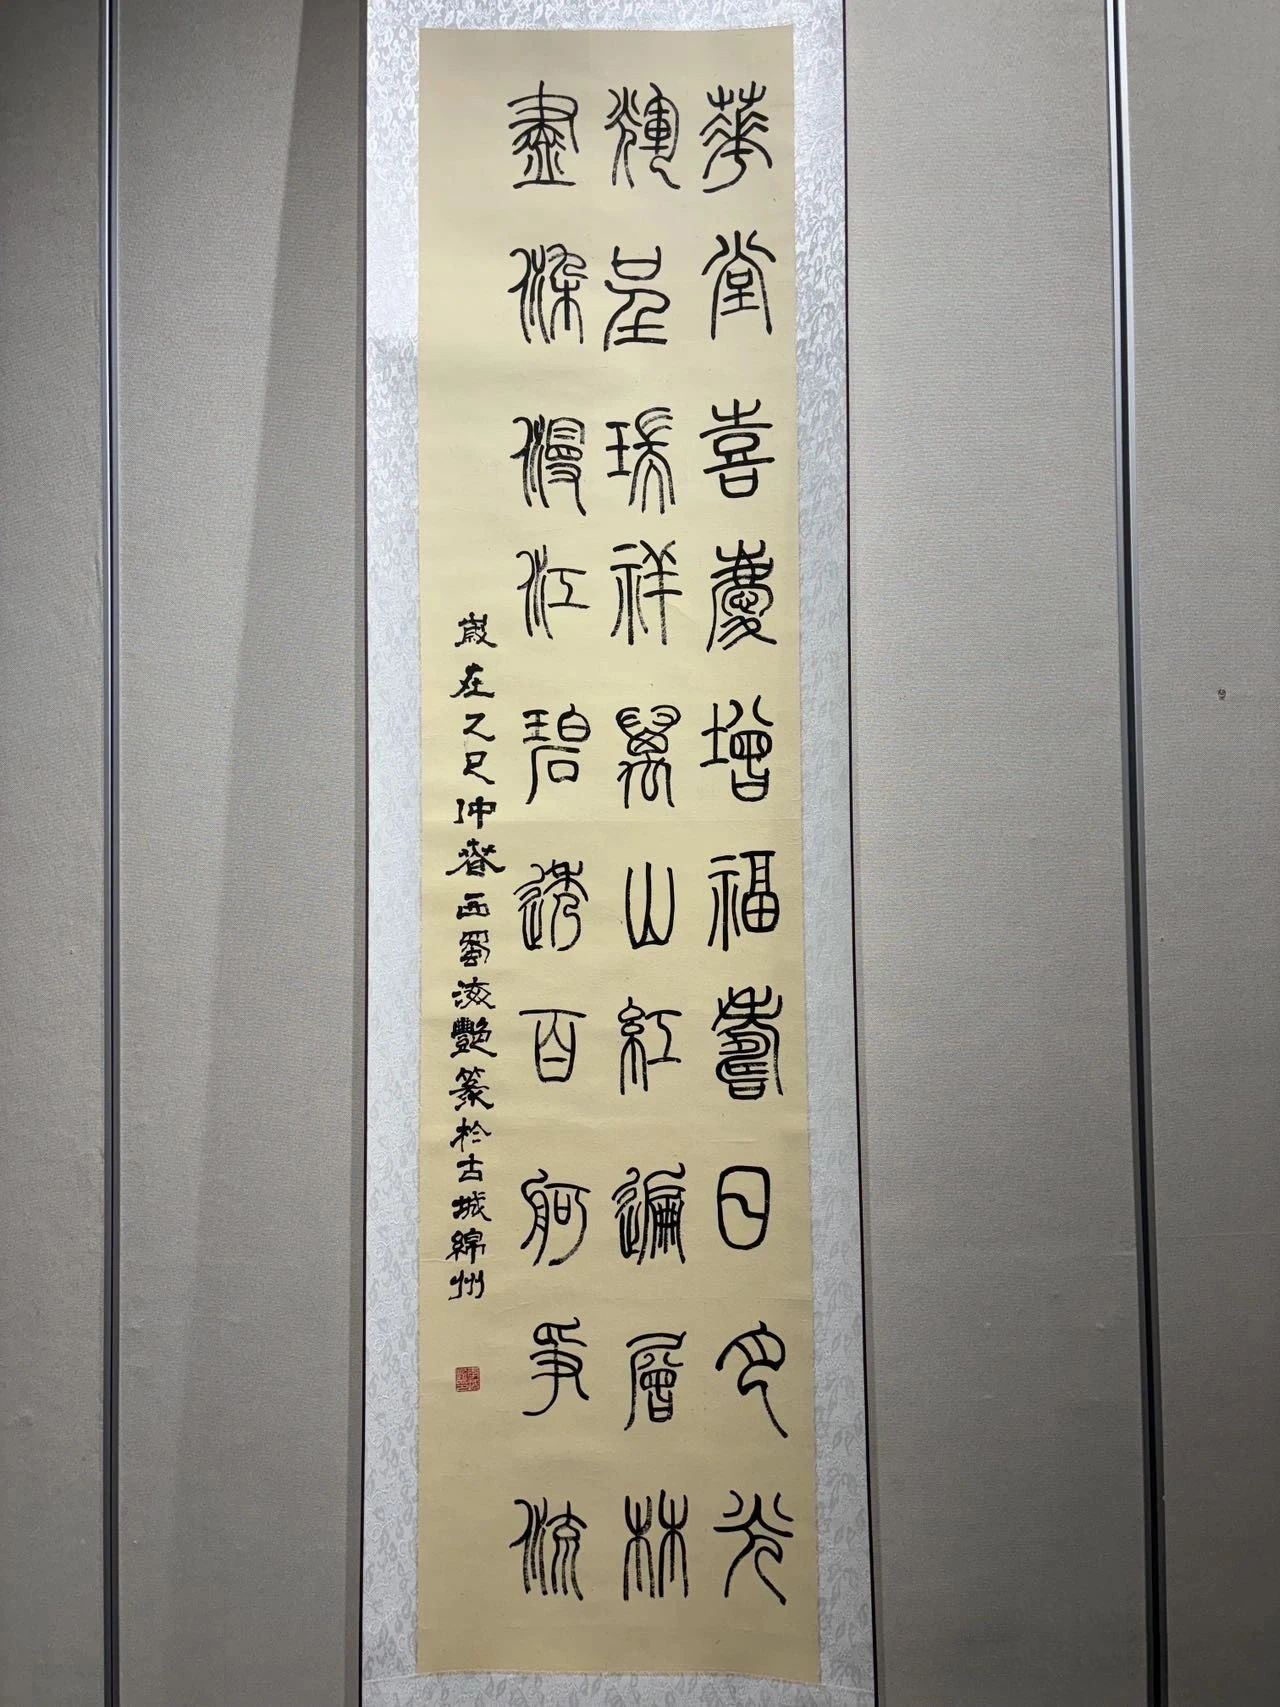 華堂喜慶增福壽日月光
輝呈瑞祥萬山紅遍層林
盡染漫江碧透百舸爭流
歲在乙巳仲春西蜀液艷篆於古城綿州